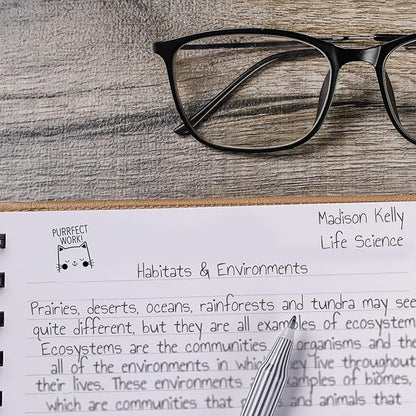 PURRFECT
WORK!
Madison Kelly
Life Science
Habitats & Environments
Prairies, deserts, oceans, rainforests and tundra may see
quite different, but they are all examples of ecosystem
Ecosystems are the communities organisms and the
all of the environments in which they live throughout
their lives. These environments examples of biomes,
which are communities that and animals that